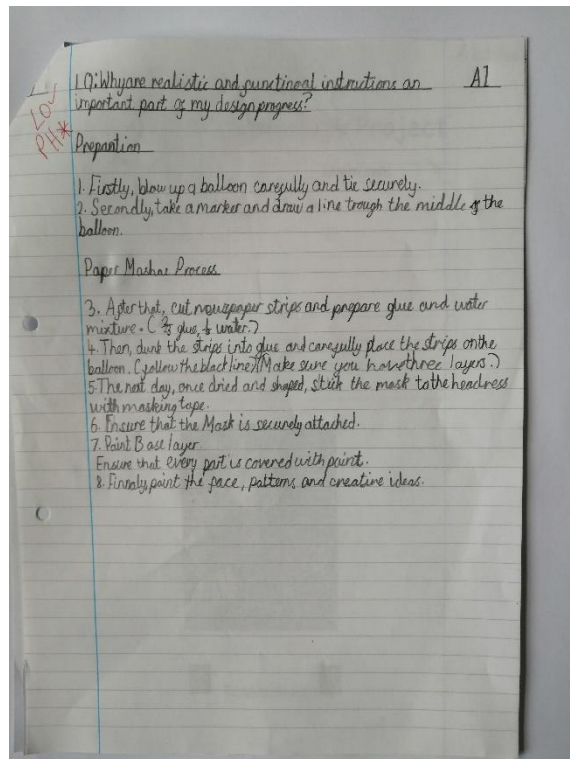 LO✓
PH*
LQ: Why are realistic and functional instructions an A1
important part of my design progress?
Prepantion
1. Firstly, blow up a balloon carefully and tie securely.
2. Secondly, take a marker and draw a line trough the middle of the
balloon.
Paper Mashae Process
3. After that, cut nowspaper strips and prepare glue and water
mixture. ( glue, water.)
4. Then, dunk the strips into glue and carefully place the strips on the
balloon. (follow the black line) (Make sure you have three layers.)
5. The next day, once dried and shaped, stick the mask to the headress
with masking tape.
6. Ensure that the Mask is securely attached.
7. Paint Base layer
Ensure that every part is covered with paint.
8. Finnaly paint the face, patterns and creative ideas.